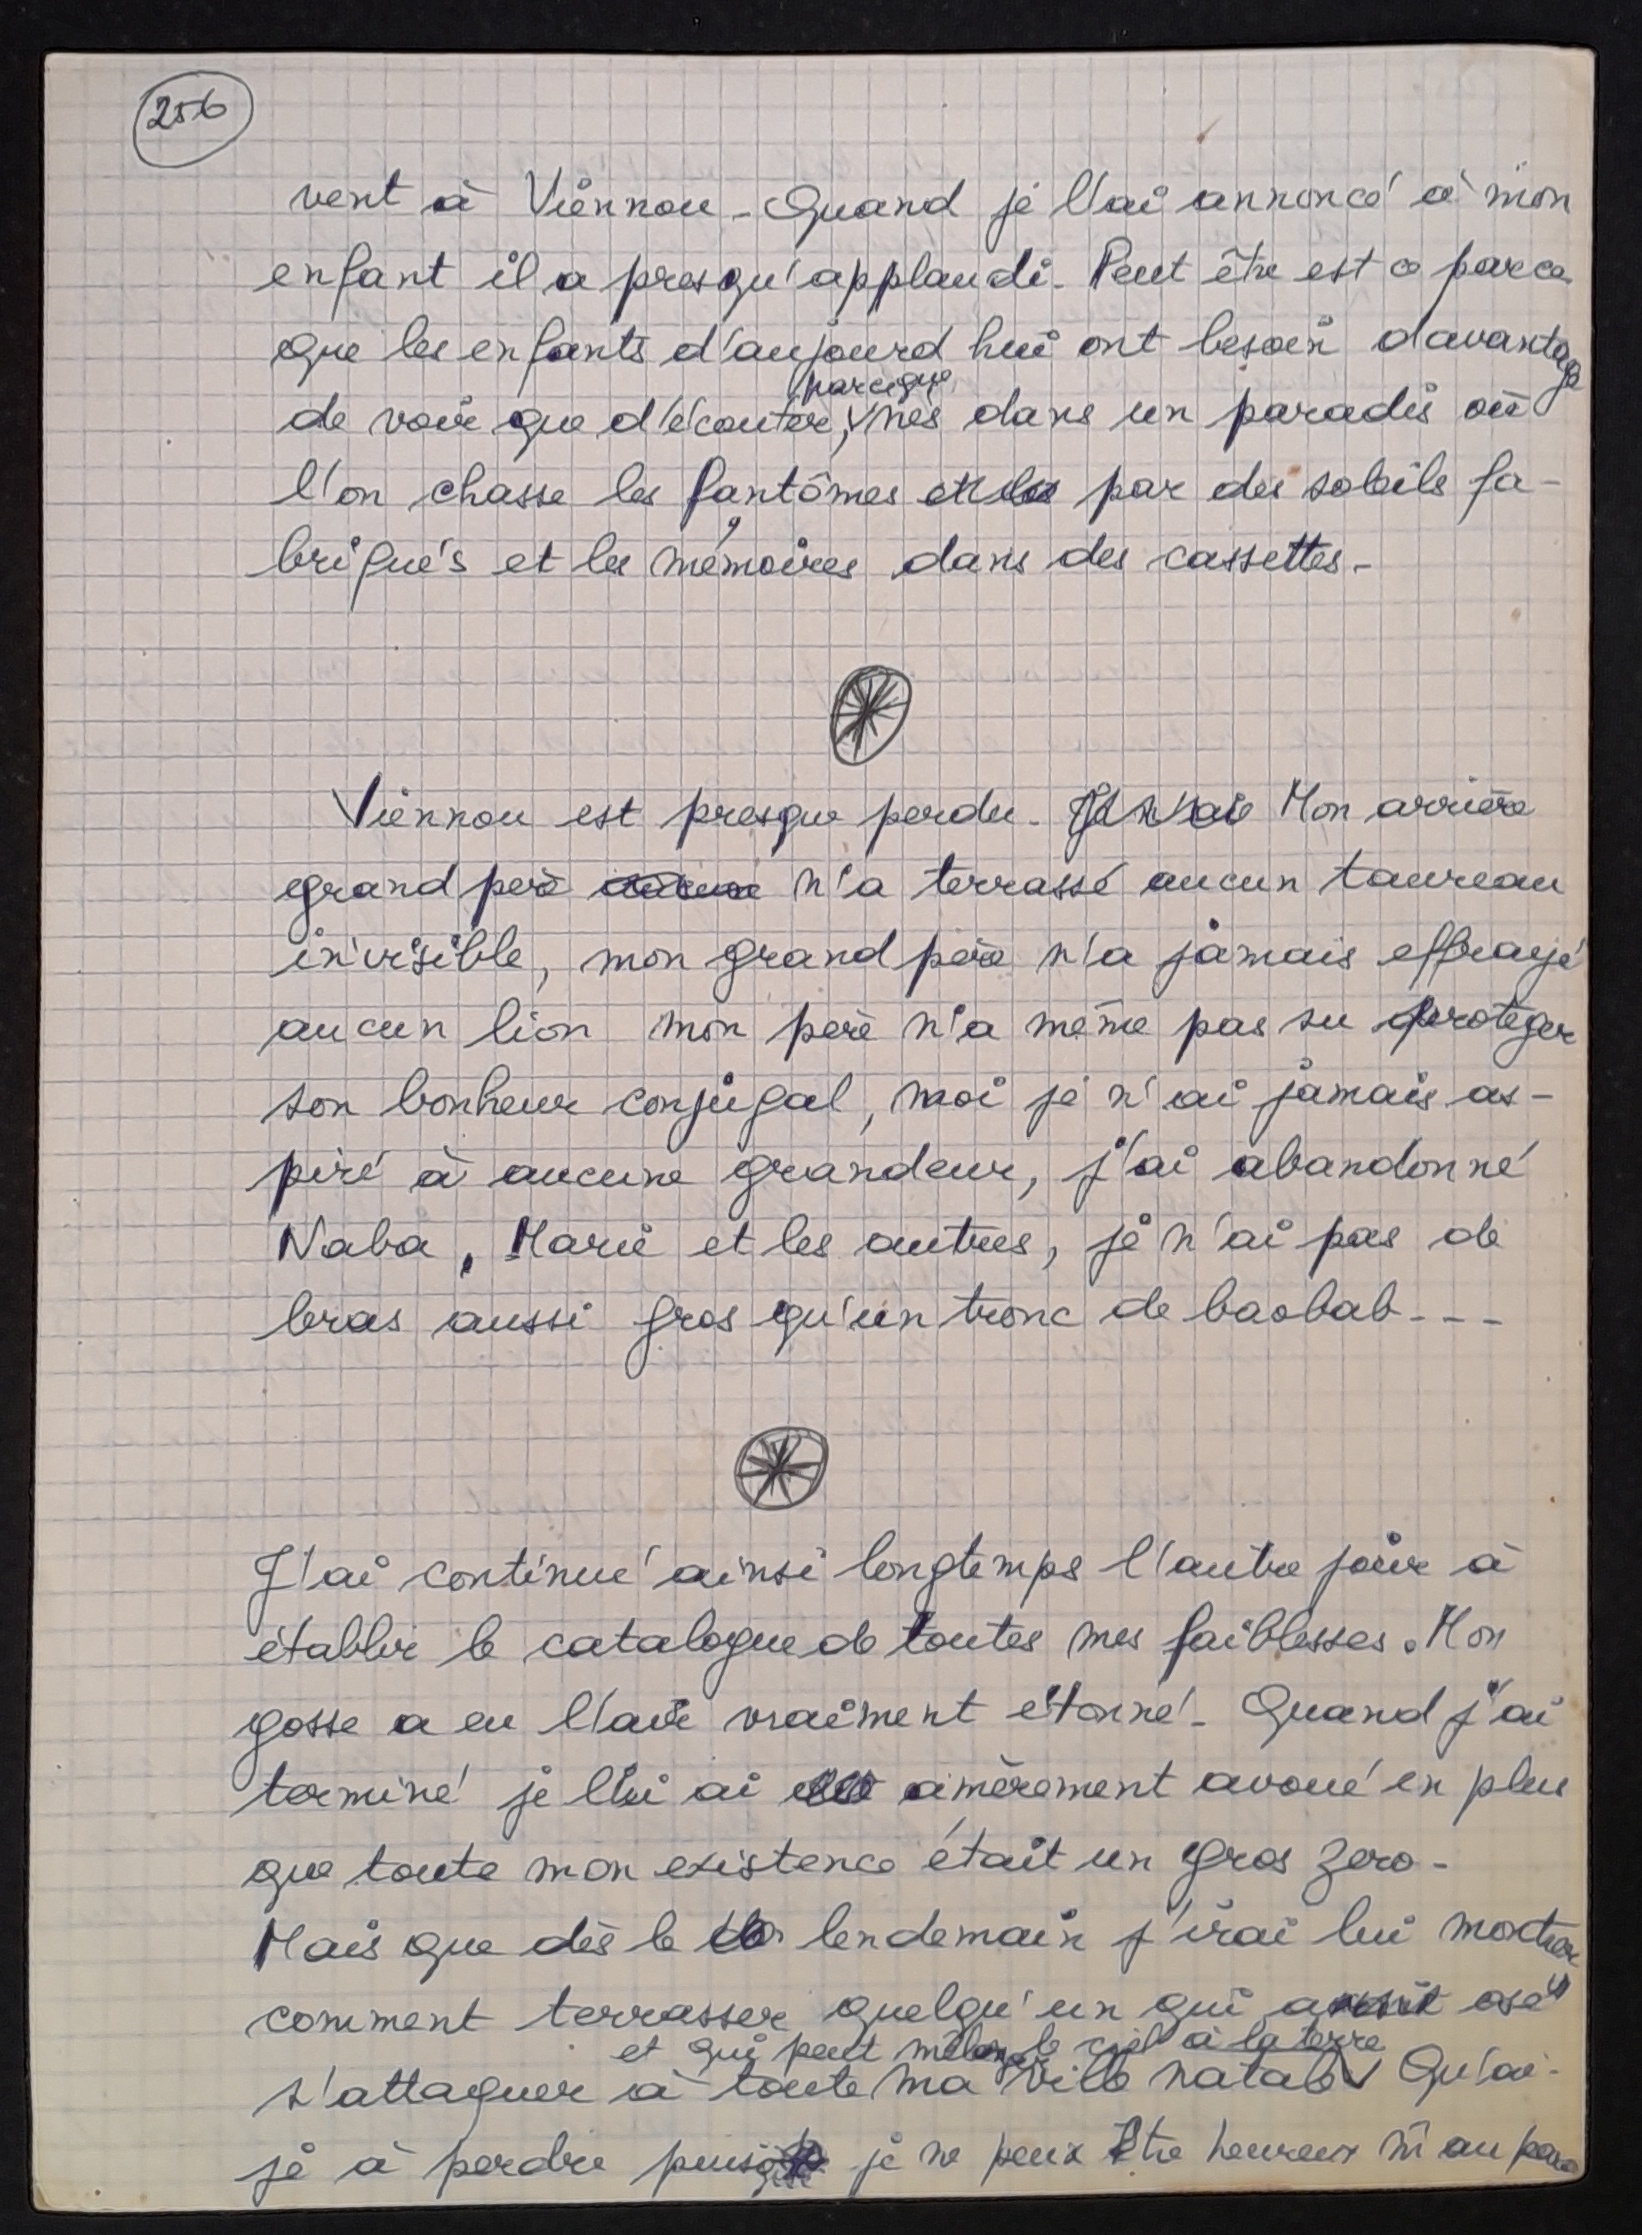 256
vent à Viênnou - Quand je l'ai annoncé à mon
enfant il a presqu'applaudi. Peut être est ce parce
que les enfants d'aujourd hui ont besoin davantage
parceque
de voir que d'écouter, nés dans un paradis où
l'on chasse les fantômes par des soleils fa-
briqués et les mémoires dans des cassettes -
Viênnou est presque perdu - Mon arrière
grand père n'a terrassé aucun taureau
invisible, mon grand père n'a jamais effrayé
aucun lion mon père n'a même pas su proteger
son bonheur conjugal, moi je n'ai jamais as-
piré à aucune grandeur, j'ai abandonné
Naba, Marie et les autres, je n'ai pas de
bras aussi gros qu'un tronc de baobab - - -
J'ai continué ainsi longtemps l'autre jour à
établir le catalogue de toutes mes faiblesses. Mon
gosse a eu l'air vraiment étonné - Quand j'ai
terminé je lui ai amèrement avoué en plus
que toute mon existence était un gros zero -
Mais que dès le lendemain j'irai lui montrer
comment terrasser quelqu'un qui a osé
et qui peut mélanger le ciel à la terre
s'attaquer à toute ma ville natale Qu'ai-
je à perdre puisque je ne peux être heureux ni au pays